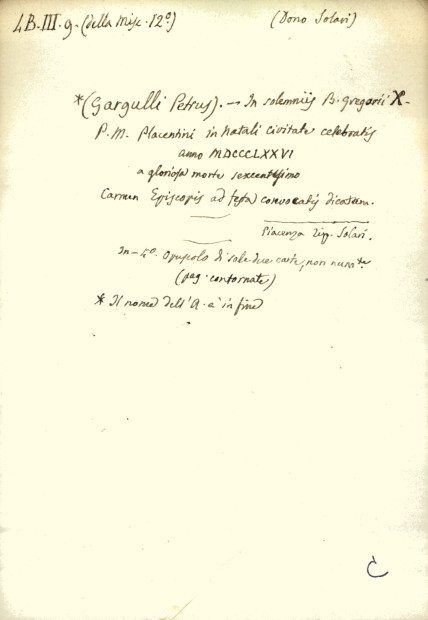 4B.III.9-(della Misc. 12°) (Dono Solari)
*(Gargulli Petrus). — In solemniis B. Gregorii X.
P. M. Placentini in natali civitate celebratis
anno MDCCCLXXVI
a gloriosa morte sexcentesimo
Carmen Episcopis ad festa convocatis dicatum.
Piacenza Tip. Solari.
In-4°. Opuscolo di sole due carte, non numte
(pag. contornate)
* Il nome dell'A. è in fine
C